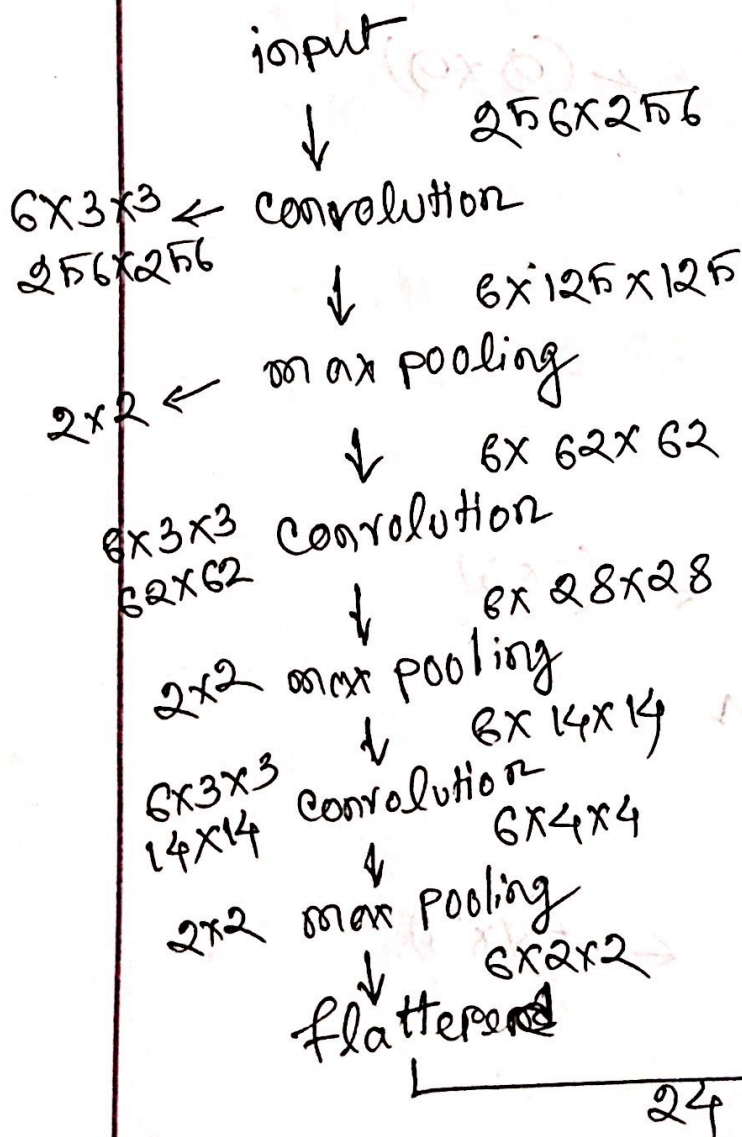 input
↓ 256×256
6×3×3 ← convolution
256×256
↓ 6×125×125
max pooling
2×2 ←
↓ 6×62×62
6×3×3 convolution
62×62
↓ 6×28×28
2×2 max pooling
↓ 6×14×14
6×3×3 convolution
14×14
↓ 6×4×4
2×2 max pooling
↓ 6×2×2
flattened
24